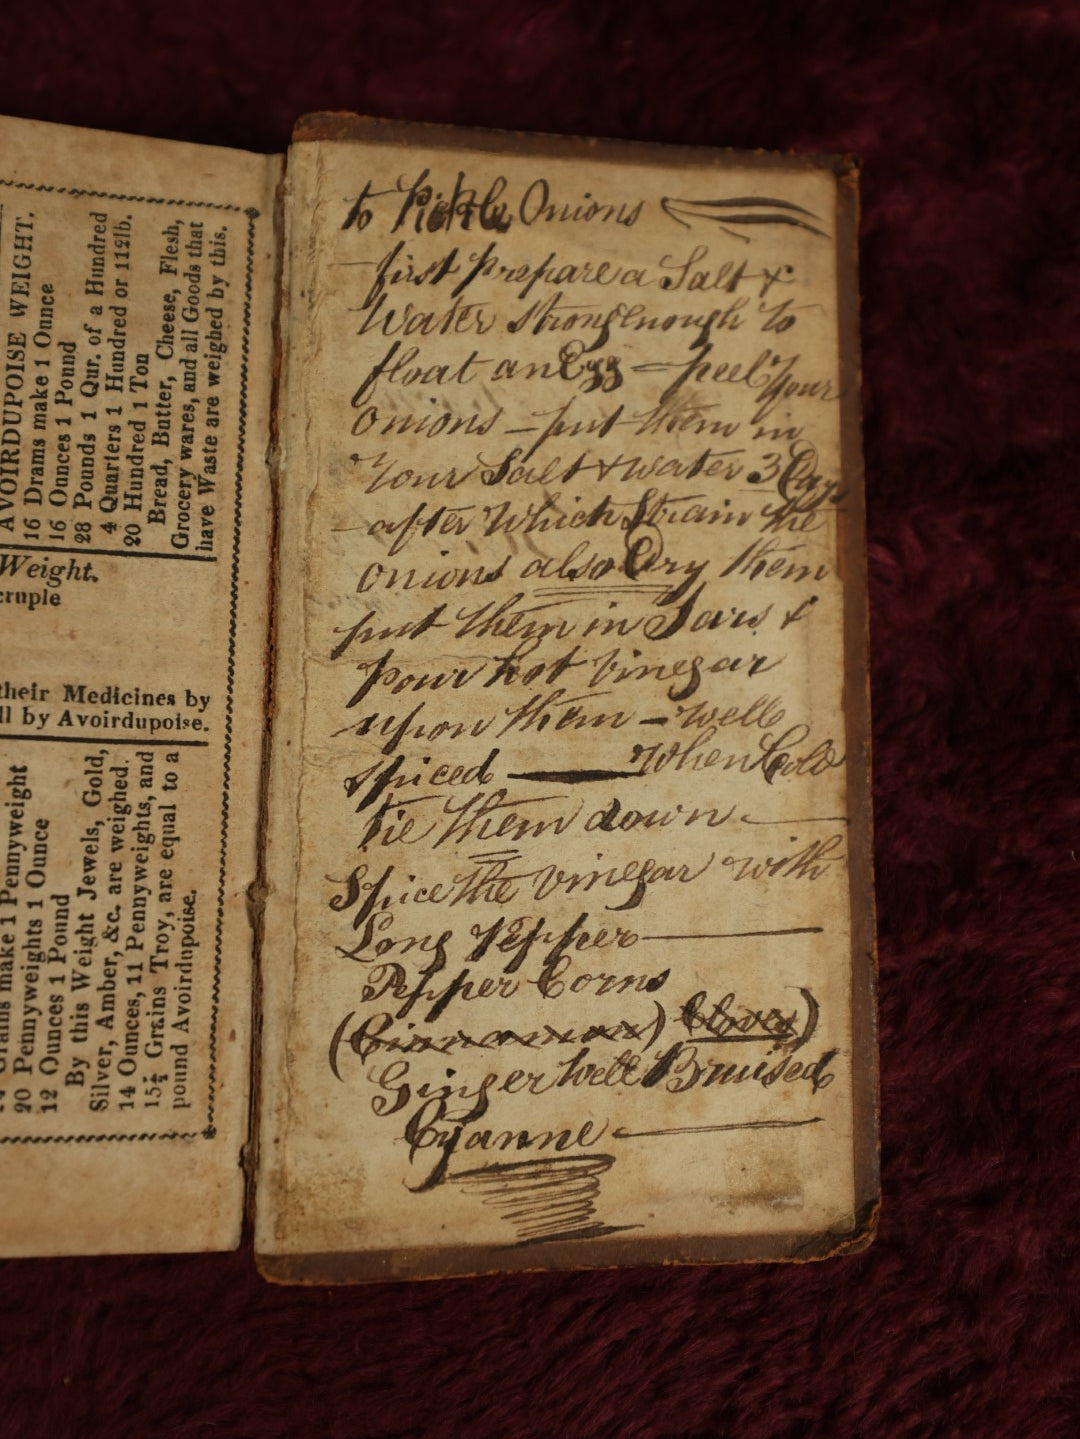 AVOIRDUPOISE WEIGHT.
16 Drams make 1 Ounce
16 Ounces 1 Pound
28 Pounds 1 Qur. of a Hundred
4 Quarters 1 Hundred or 112lb.
20 Hundred 1 Ton
Bread, Butter, Cheese, Flesh,
Grocery wares, and all Goods that
have Waste are weighed by this.
Weight.
cruple
their Medicines by
ll by Avoirdupoise.
Grains make 1 Pennyweight
20 Pennyweights 1 Ounce
12 Ounces 1 Pound
By this Weight Jewels, Gold,
Silver, Amber, &c. are weighed.
14 Ounces, 11 Pennyweights, and
15½ Grains Troy, are equal to a
pound Avoirdupoise.
to Pickle Onions
first prepare a Salt &
Water strong enough to
float an Egg — peel your
onions — put them in
your Salt & water 3 Days
— after which Strain the
onions also Dry them
put them in Jars &
pour hot vinegar
upon them — well
spiced — when Cold
tie them down —
Spice the vinegar with
Long Pepper —
Pepper Corns
(Cinnamon) Cloves)
Ginger well Bruised
Cyanne —